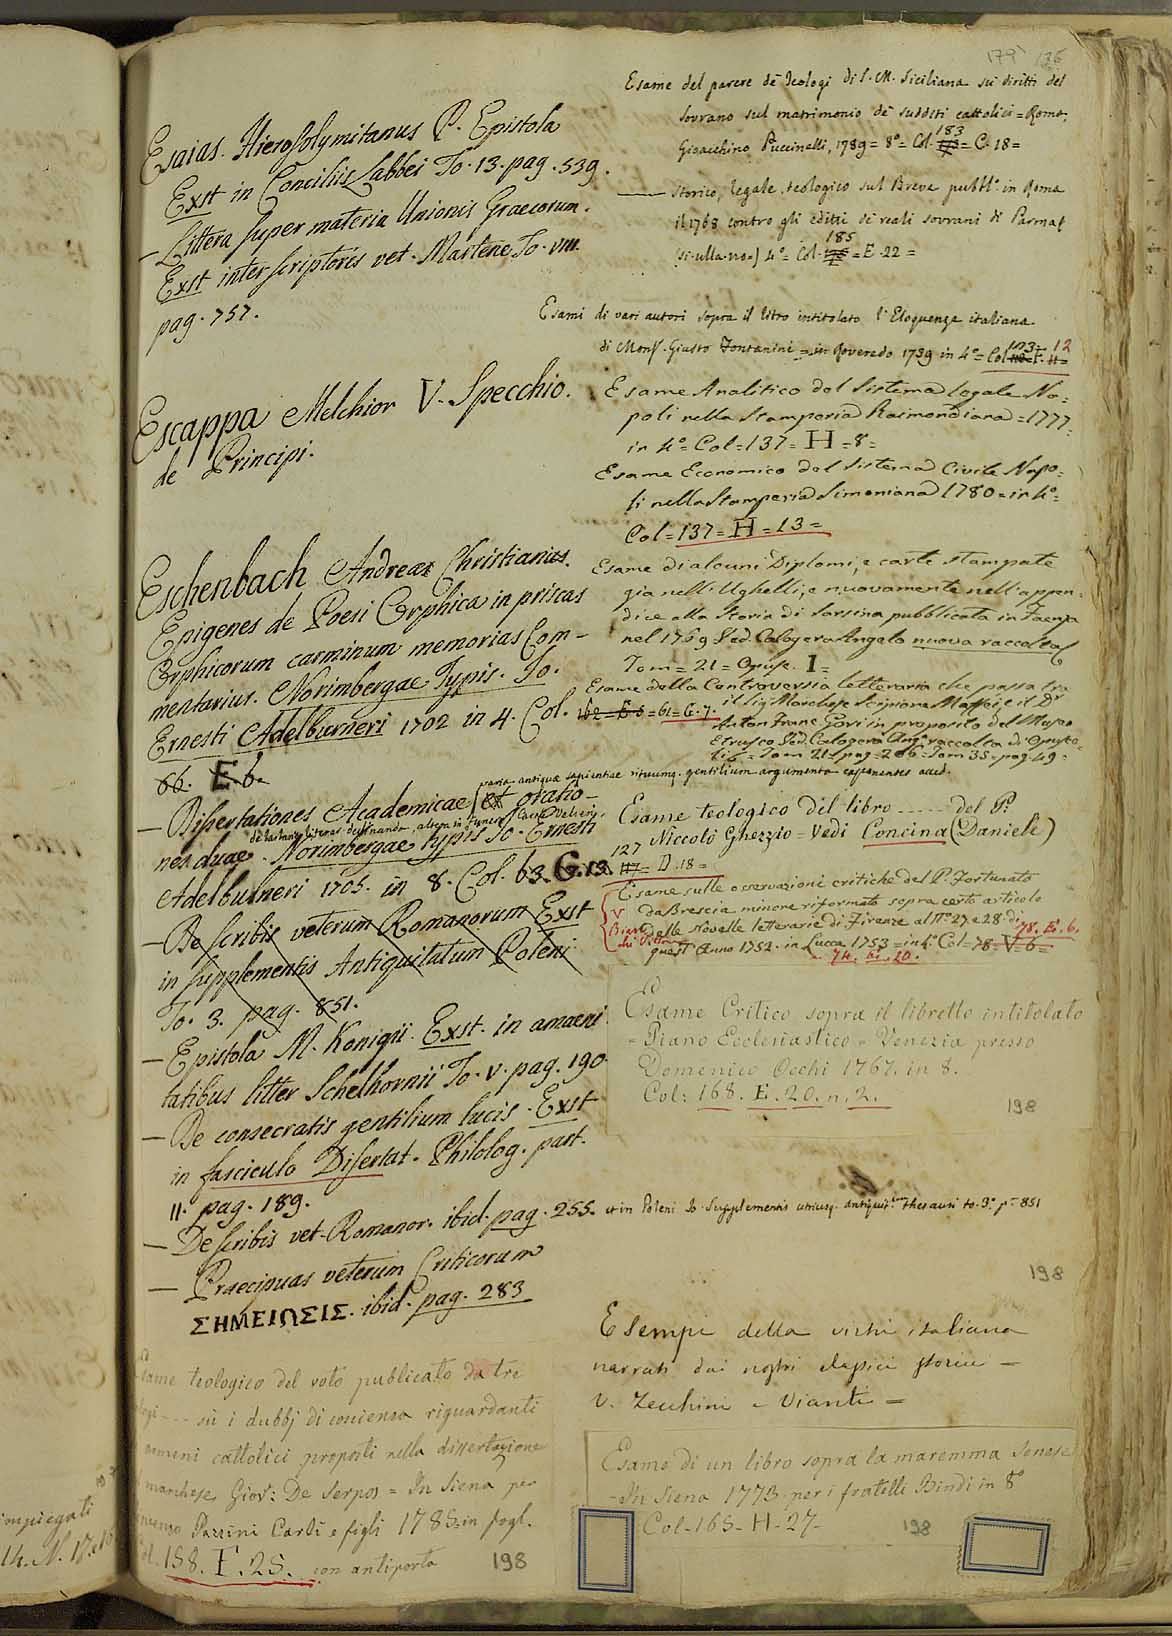 179 136
Esaias Hierosolymitanus P. Epistola
Exst in Conciliis Labbei To. 13. pag. 539.
— Littera super materia Unionis Graecorum.
Exst inter scriptores vet. Martene To. VIII.
pag. 757.
Escappa Melchior V. Specchio
de Principi.
Eschenbach Andreas Christianus.
Epigenes de Poesi Orphica in priscas
Orphicorum carminum memorias Com-
mentarius. Norimbergae Typis. Io.
Ernesti Adelburneri 1702 in 4. Col. 162 = E 8 = 61 = G. 7.
66. E. 6.
varia antiquae sapientiae rituumq. gentilium argumenta
— Dissertationes Academicae et oratio-
nes duae. Norimbergae typis Io. Ernesti
Adelburneri 1705. in 8. Col. 63. G. 13.
— De scribis veterum Romanorum Exst
in supplementis Antiquitatum Poleni
To. 3. pag. 851.
— Epistola M. Konigii. Exst. in amoeni
tatibus litter Schelhornii To. V. pag. 190
— De consecratis gentilium lucis. Exst
in fasciculo Disertat. Philolog. part.
II. pag. 189.
— De scribis vet. Romanor. ibid. pag. 255. et in Poleni Io. Supplementis utriusq. antiquit. Thesauri to. 3. p. 851
— Praecipuas veterum Criticorum
ΣΗΜΕΙΩΣΙΣ. ibid. pag. 283
teologico del voto publicato da tre
su i dubbj di coscienza riguardanti
armeni cattolici proposti nella dissertazione
marchese Giov: De Serpos = In Siena per
Pazzini Carli e figli 1785 in fogl.
158. F. 25. con antiporta 198
Esame del parere de Teologi di S. M. Siciliana sui diritti del
sovrano sul matrimonio de sudditi cattolici = Roma.
Gioacchino Puccinelli, 1789 = 8° = Col. 183 = C. 18 =
—— storico, legale, teologico sul Breve pubbl. in Roma
il 1768 contro gli editti de reali sovrani di Parma
4° = Col. 185 = E. 22 =
Esami di vari autori sopra il libro intitolato l'Eloquenza italiana
di Mons. Giusto Fontanini = in Roveredo 1739 in 4° = Col. 12
Esame Analitico del Sistema legale Na:
poli nella Stamperia Raimondiana = 1777.
in 4° = Col = 137 = H = 8 =
Esame Economico del Sistema Civile Napo=
li nella Stamperia Simoniana 1780 = in 4° =
Col = 137 = H = 13 =
Esame di alcuni Diplomi, e carte stampate
gia nell'Ughelli, e nuovamente nell'appen:
dice alla Storia di Sarsina pubblicata in Faenza
nel 1769 Ved. Calogera Angelo nuova raccolta
Tom = 21 = Opusc. I =
Esame della Controversia letteraria che passa tra
il Sig. Marchese Scipione Maffei e il Dr
Anton Franc Gori in proposito del Museo
Etrusco Ved. Calogera Ang. raccolta d'Opusco-
li = Tom 21 = pag = 206 = Tom 35. pag 49 =
Esame teologico del libro ----- del P.
Niccolò Ghezzio = Vedi Concina (Daniele)
127 = D. 18 =
Esame sulle osservazioni critiche del P. Fortunato
da Brescia minore riformato sopra certo articolo
delle Novelle letterarie di Firenze al N° 27 e 28 di
quest'Anno 1752. in Lucca 1753 = in 4° Col = 78 = V = 6 =
78. E. 6.
74. 20.
Esame Critico sopra il libretto intitolato
= Piano Ecclesiastico = Venezia presso
Domenico Occhi 1767. in 8.
Col: 168. E. 20. n. 2.
198
198
Esempi della virtù italiana
narrati dai nostri
V. Zecchini = Vianti =
Esame di un libro sopra la maremma Senese
- In Siena 1773. per i fratelli Bindi in 8°
Col - 165 - H - 27 - 198
impiegati
14. N. 17.